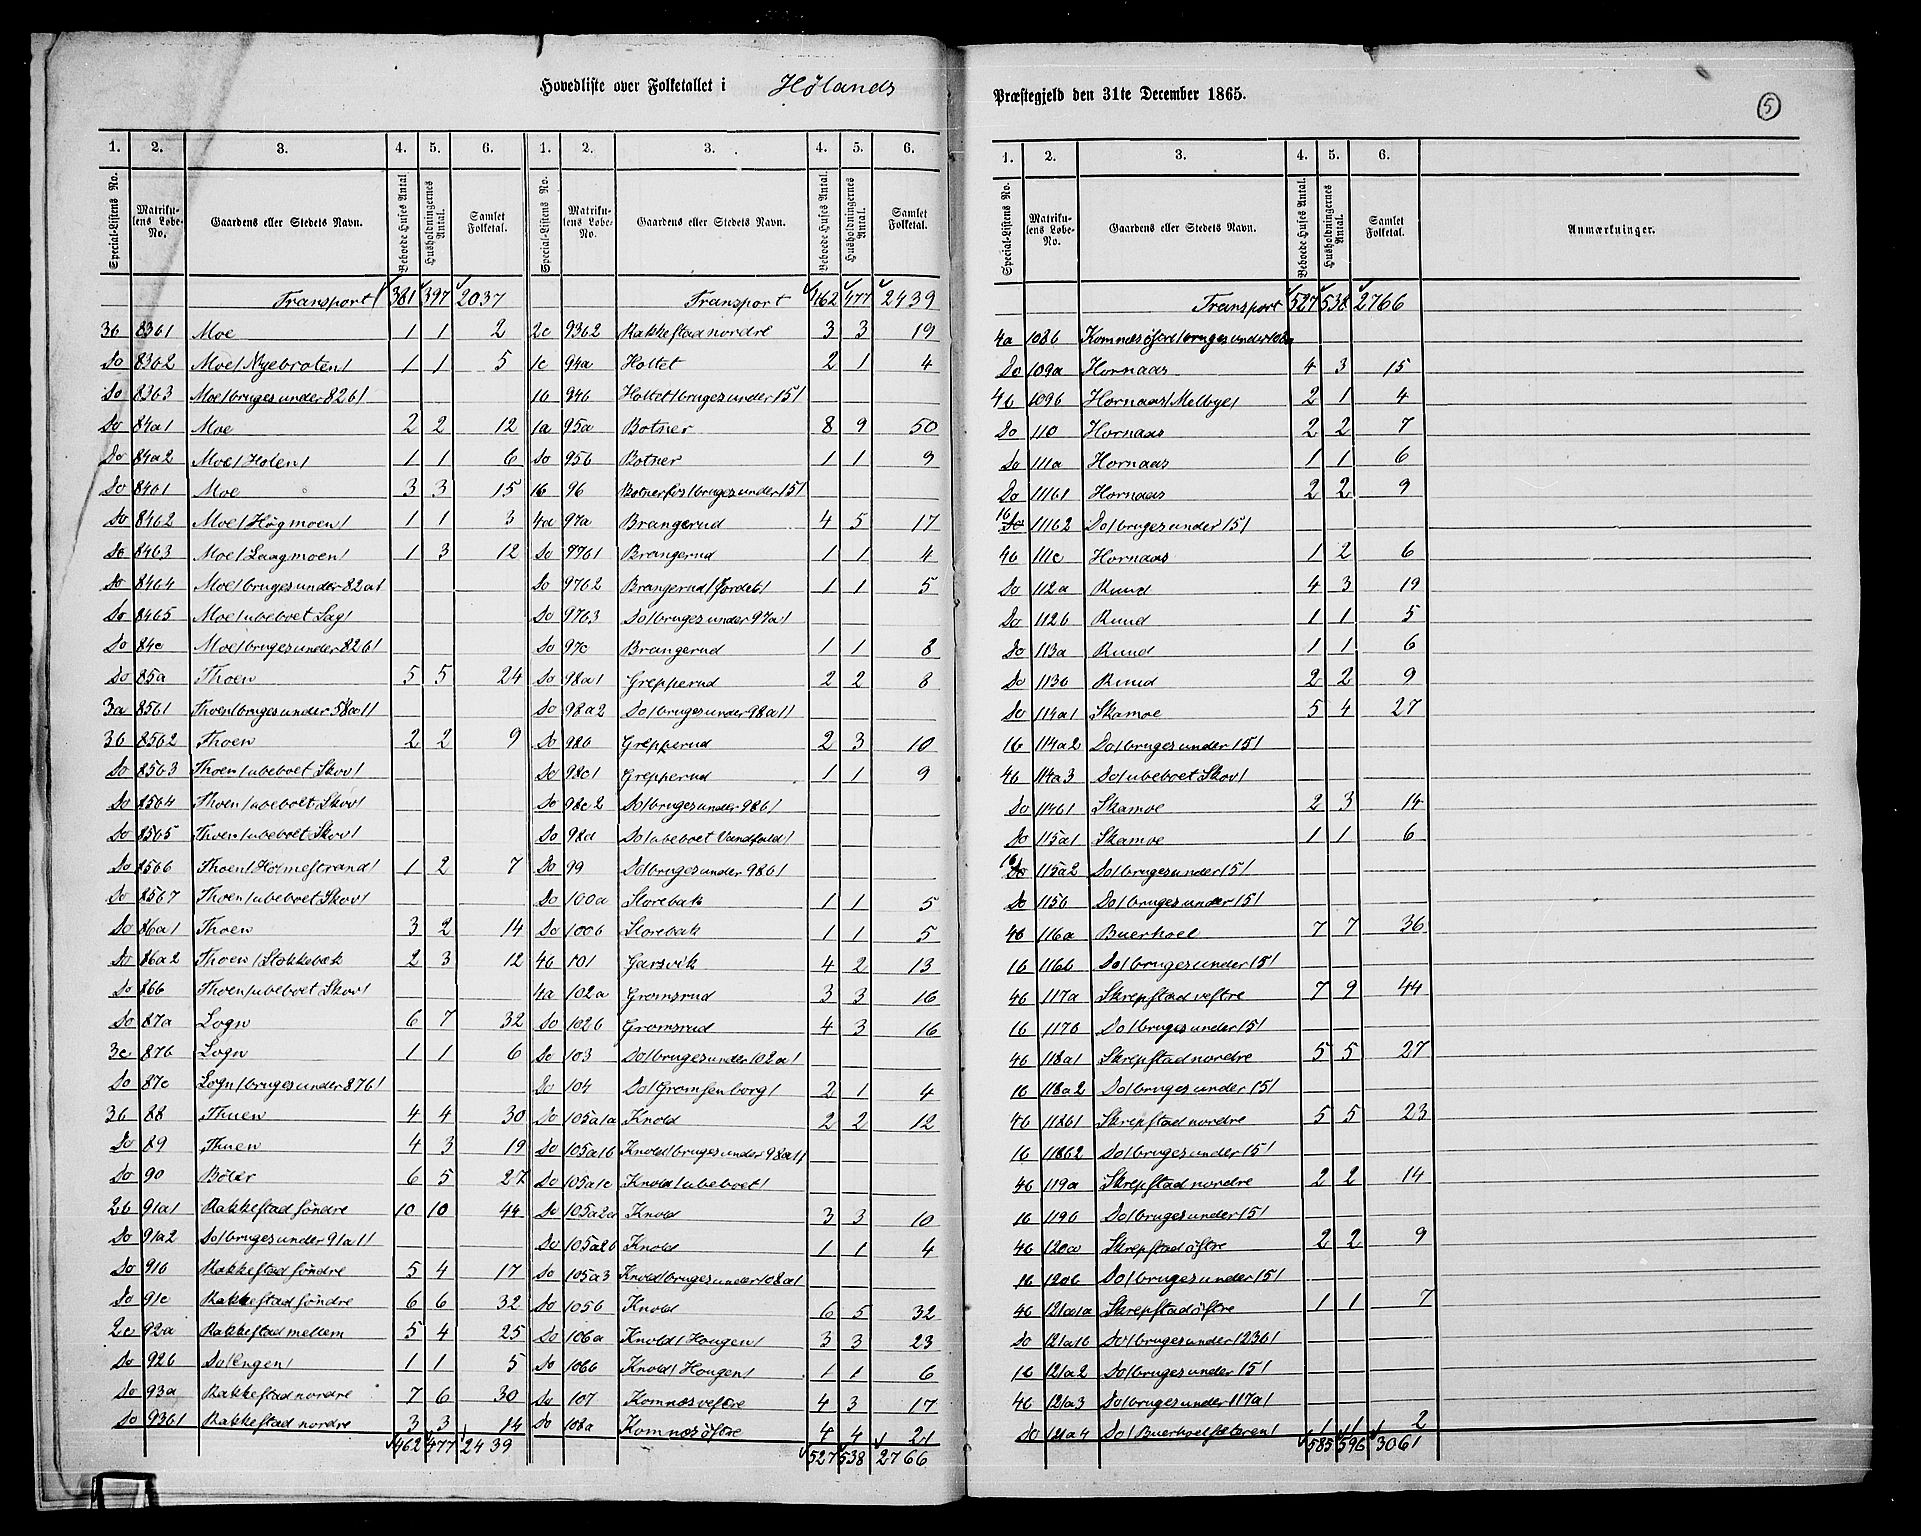 Hovedliste over Folketallet i Hølands
Præstegjeld den 31te December 1865.
5
1. 2. 3. 4. 5. 6. 1. 2. 3. 4. 5. 6.
Special-Listens No. Matrikulens Løbe-No. Gaardens eller Stedets Navn. Beboede Huses Antal Husholdningernes Antal. Samlet Folketal. Special-Listens No. Matrikulens Løbe-No. Gaardens eller Stedets Navn. Beboede Huses Antal. Husholdningernes Antal. Samlet Folketal.
Transport 381 397 2037
3b 83b1 Moe 1 1 2
Do 83b2 Moe/Nyebraten/ 1 1 5
Do 83b3 Moe/bruges under 82b/
Do 84a1 Moe 2 2 12
Do 84a2 Moe/Holen/ 1 1 6
Do 84b1 Moe 3 3 15
Do 84b2 Moe/Høgmoen/ 1 1 3
Do 84b3 Moe/Laagmoen/ 1 3 12
Do 84b4 Moe/bruges under 82a/
Do 84b5 Moe/ubeboet Sag/
Do 84c Moe/bruges under 82b/
Do 85a Thoen 5 5 24
3a 85b1 Thoen/bruges under 58a1/
3b 85b2 Thoen 2 2 9
Do 85b3 Thoen/ubeboet Skov/
Do 85b4 Thoen/ubeboet Skov/
Do 85b5 Thoen/ubeboet Skov/
Do 85b6 Thoen/Holmestrand/ 1 2 7
Do 85b7 Thoen/ubeboet Skov/
Do 86a1 Thoen 3 2 14
Do 86a2 Thoen/Stokkebæk 2 3 12
Do 86b Thoen/ubeboet Skov/
Do 87a Logn 6 7 32
3c 87b Logn 1 1 6
Do 87c Logn/bruges under 87b/
3b 88 Thuen 4 4 30
Do 89 Thuen 4 3 19
Do 90 Böler 6 5 27
2b 91a1 Rakkestad söndre 10 10 44
Do 91a2 Do/bruges under 91a1/
Do 91b Rakkestad söndre 5 4 17
Do 91c Rakkestad söndre 6 6 32
2c 92a Rakkestad mellem 5 4 25
Do 92b Do/Engen/ 1 1 5
Do 93a Rakkestad nordre 7 6 30
Do 93b1 Rakkestad nordre 3 3 14
462 477 2439
Transport 462 477 2439
2c 93b2 Rakkestad nordre 3 3 19
1c 94a Holtet 2 1 4
1b 94b Holtet/bruges under 15/
1a 95a Botner 8 9 50
Do 95b Botner 1 1 9
1b 96 /bruges under 15/
4a 97a Brangerud 4 5 17
Do 97b1 Brangerud 1 1 4
Do 97b2 Brangerud/Jordet/ 1 1 5
Do 97b3 Do/bruges under 97a/
Do 97c Brangerud 1 1 8
Do 98a1 Grepperud 2 2 8
Do 98a2 Do/bruges under 98a1/
Do 98b Grepperud 2 3 10
Do 98c1 Grepperud 1 1 9
Do 98c2 Do/bruges under 98b/
Do 98d Do/ubeboet Vandfald/
Do 99 Do/bruges under 98b/
Do 100a Storebæk 1 1 5
Do 100b Storebæk 1 1 5
4b 101 Garsvik 4 2 13
4a 102a Gromsrud 3 3 16
Do 102b Gromsrud 4 3 16
Do 103 Do/bruges under 102a/
Do 104 Do/Gromsenborg/ 2 1 4
Do 105a1a Knold 2 2 12
Do 105a1b Knold/bruges under 98a1/
Do 105a1c Knold/ubeboet/
Do 105a2a Knold 3 3 10
Do 105a2b Knold 1 1 4
Do 105a3 Knold/bruges under 108a/
Do 105b Knold 6 5 32
Do 106a Knold/Haugen/ 3 3 23
Do 106b Knold/Haugen/ 1 1 6
Do 107 Komnæs vestre 4 3 17
Do 108a Komnæs östre 4 4 21
527 538 2766
1. 2. 3. 4. 5. 6.
Special-Listens No. Matrikulens Løbe-No. Gaardens eller Stedets Navn. Beboede Huses Antal. Husholdningernes Antal. Samlet Folketal. Anmærkninger.
Transport 527 538 2766
4a 108b Komnæs östre/bruges under 108a
Do 109a Hornaas 4 3 15
4b 109b Hornaas/Melbye/ 2 1 4
Do 110 Hornaas 2 2 7
Do 111a Hornaas 1 1 6
Do 111b1 Hornaas 2 2 9
1b 111b2 Do/bruges under 15/
4b 111c Hornaas 1 2 6
Do 112a Ruud 4 3 19
Do 112b Ruud 1 1 5
Do 113a Ruud 1 1 6
Do 113b Ruud 2 2 9
Do 114a1 Skamoe 5 4 27
1b 114a2 Do/bruges under 15/
4b 114a3 Do/ubeboet Skov/
Do 114b1 Skamoe 2 3 14
Do 115a1 Skamoe 1 1 6
1b 115a2 Do/bruges under 15/
Do 115b Do/bruges under 15/
4b 116a Buerhoel 7 7 36
1b 116b Do/bruges under 15/
4b 117a Skrepstad vestre 7 9 44
1b 117b Do/bruges under 15/
4b 118a1 Skrepstad nordre 5 5 27
1b 118a2 Do/bruges under 15/
4b 118b1 Skrepstad nordre 5 5 23
1b 118b2 Do/bruges under 15/
4b 119a Skrepstad nordre 2 2 14
1b 119b Do/bruges under 15/
4b 120a Skrepstad östre 2 2 9
1b 120b Do/bruges under 15/
4b 121a1a Skrepstad östre 1 1 7
Do 121a1b Do/bruges under 123b/
1b 121a2 Do/bruges under 15/
4b 121a3 Do/bruges under 117a/
Do 121a4 Do/Buerhoelsæteren/ 1 1 2
585 596 3061